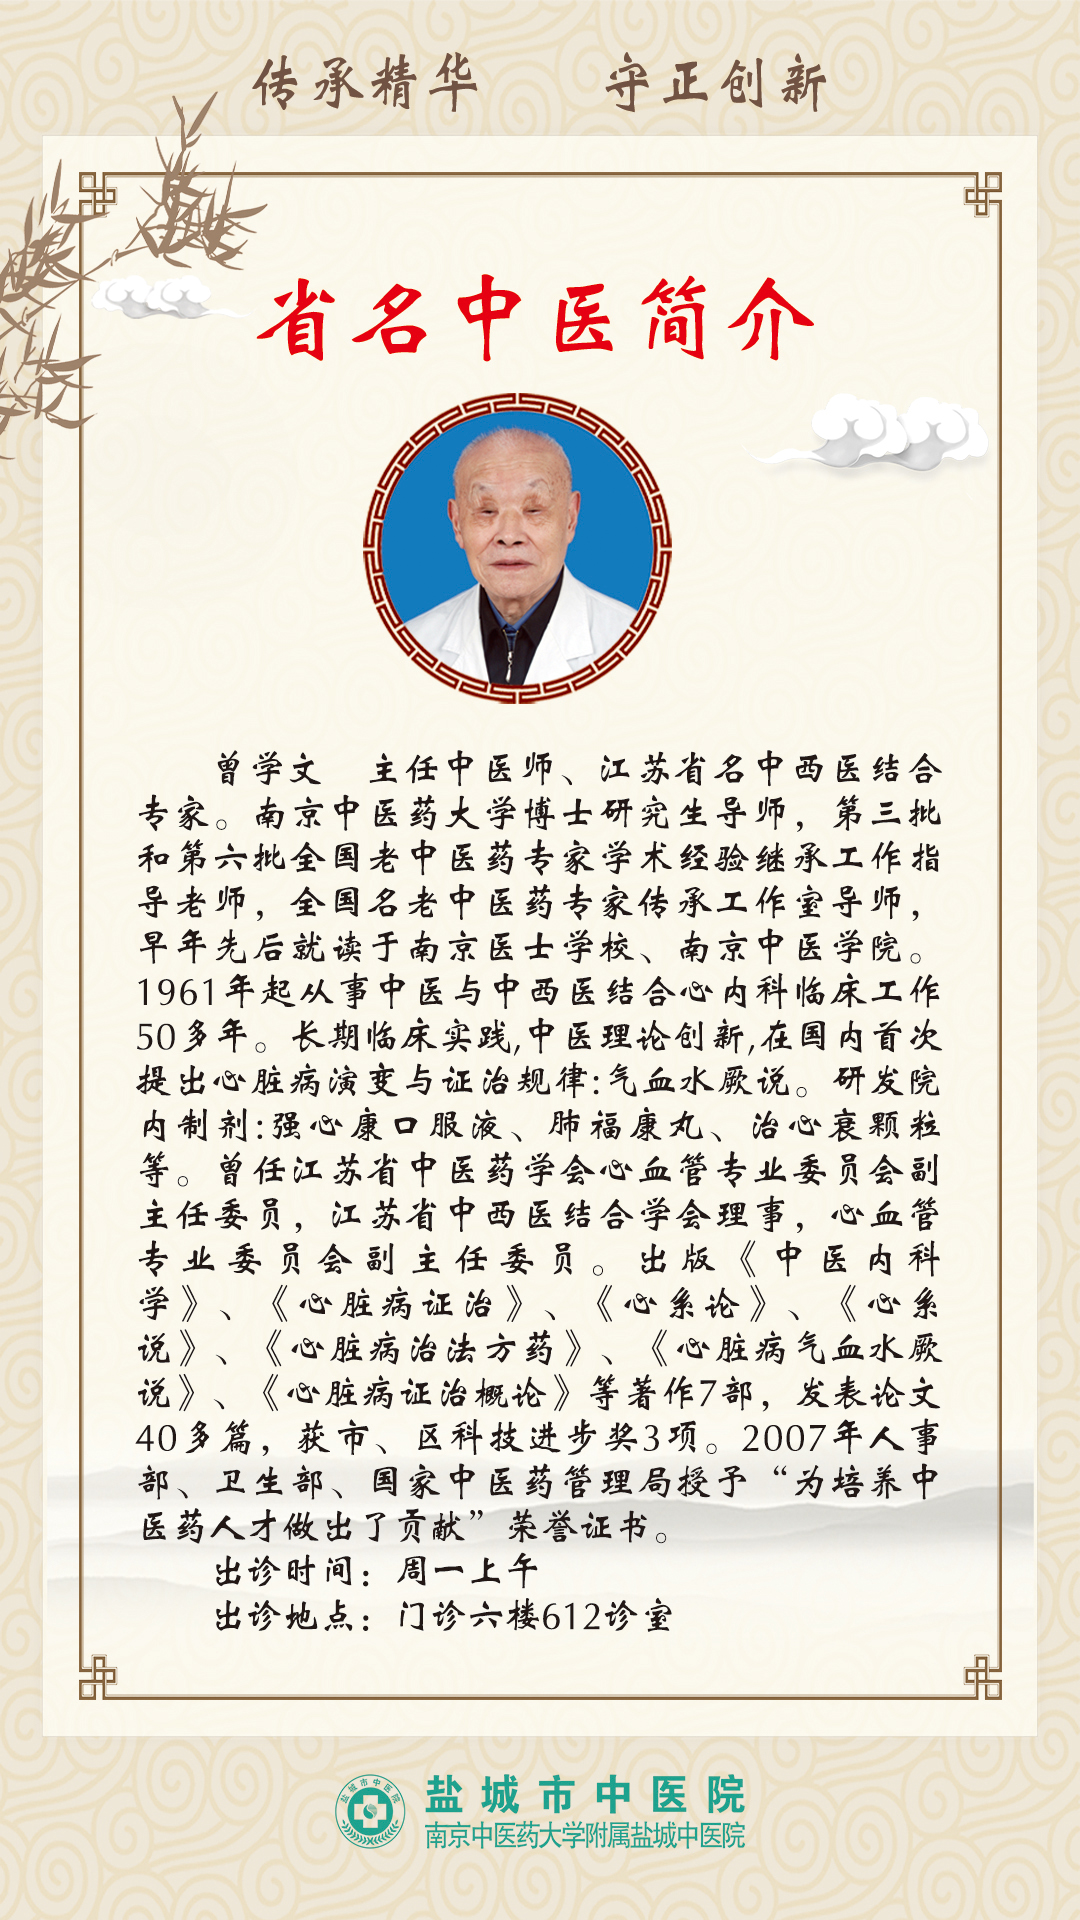 传承精华 守正创新
省名中医简介
曾学文 主任中医师、江苏省名中西医结合
专家。南京中医药大学博士研究生导师，第三批
和第六批全国老中医药专家学术经验继承工作指
导老师，全国名老中医药专家传承工作室导师，
早年先后就读于南京医士学校、南京中医学院。
1961年起从事中医与中西医结合心内科临床工作
50多年。长期临床实践,中医理论创新,在国内首次
提出心脏病演变与证治规律:气血水厥说。研发院
内制剂:强心康口服液、肺福康丸、治心衰颗粒
等。曾任江苏省中医药学会心血管专业委员会副
主任委员，江苏省中西医结合学会理事，心血管
专业委员会副主任委员。出版《中医内科
学》、《心脏病证治》、《心系论》、《心系
说》、《心脏病治法方药》、《心脏病气血水厥
说》、《心脏病证治概论》等著作7部，发表论文
40多篇，获市、区科技进步奖3项。2007年人事
部、卫生部、国家中医药管理局授予“为培养中
医药人才做出了贡献”荣誉证书。
出诊时间：周一上午
出诊地点：门诊六楼612诊室
盐城市中医院
盐城市中医院
南京中医药大学附属盐城中医院